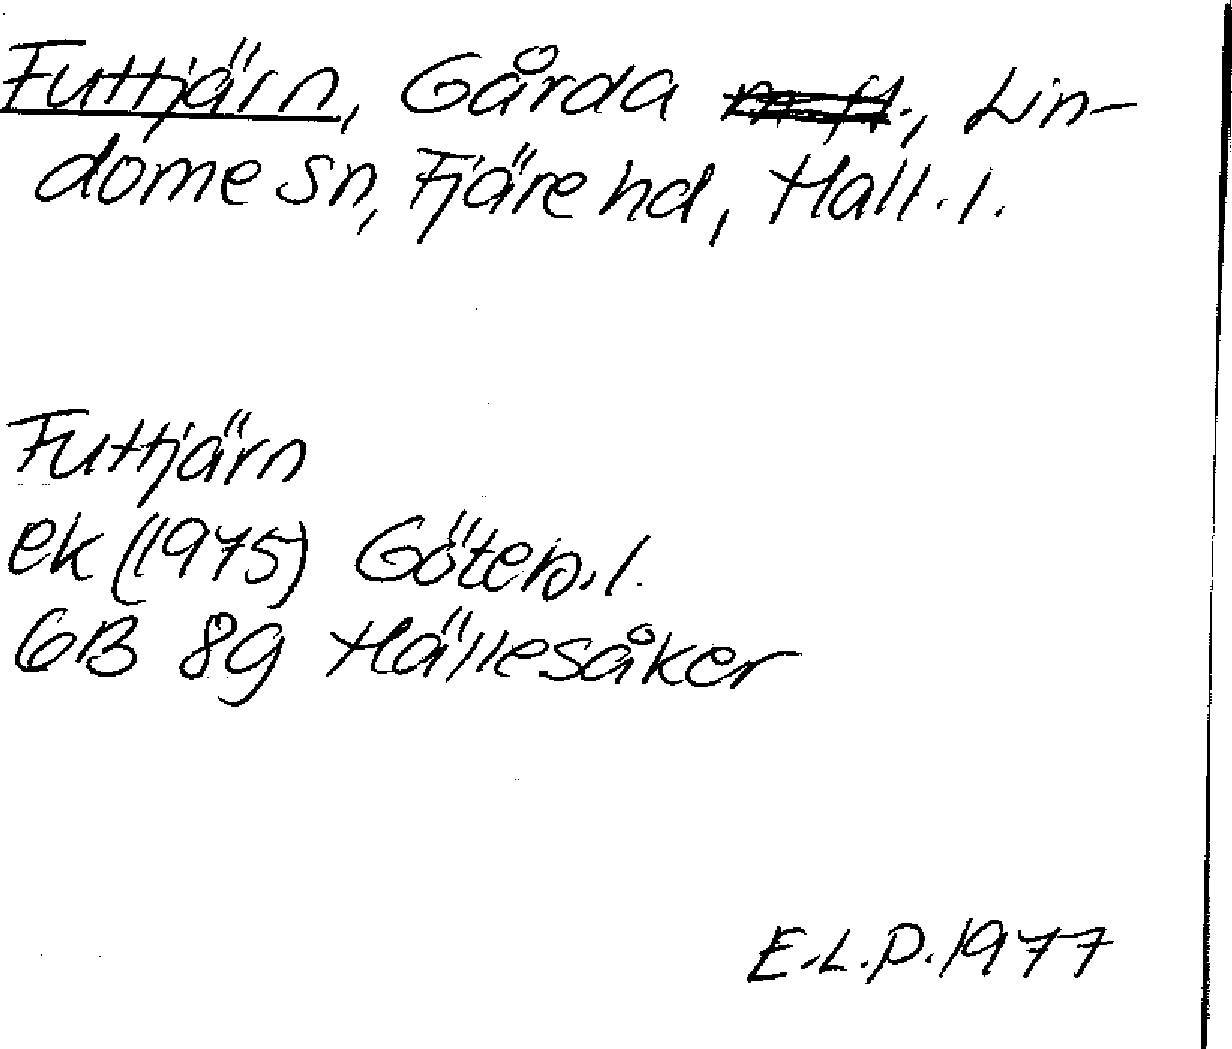 Futtjärn, Gårda, Lin-
dome sn, Fjäre hd, Hall. l.
Futtjärn
ek (1975) Göteb. l.
6B 8g Hällesåker
E.L.P. 1977